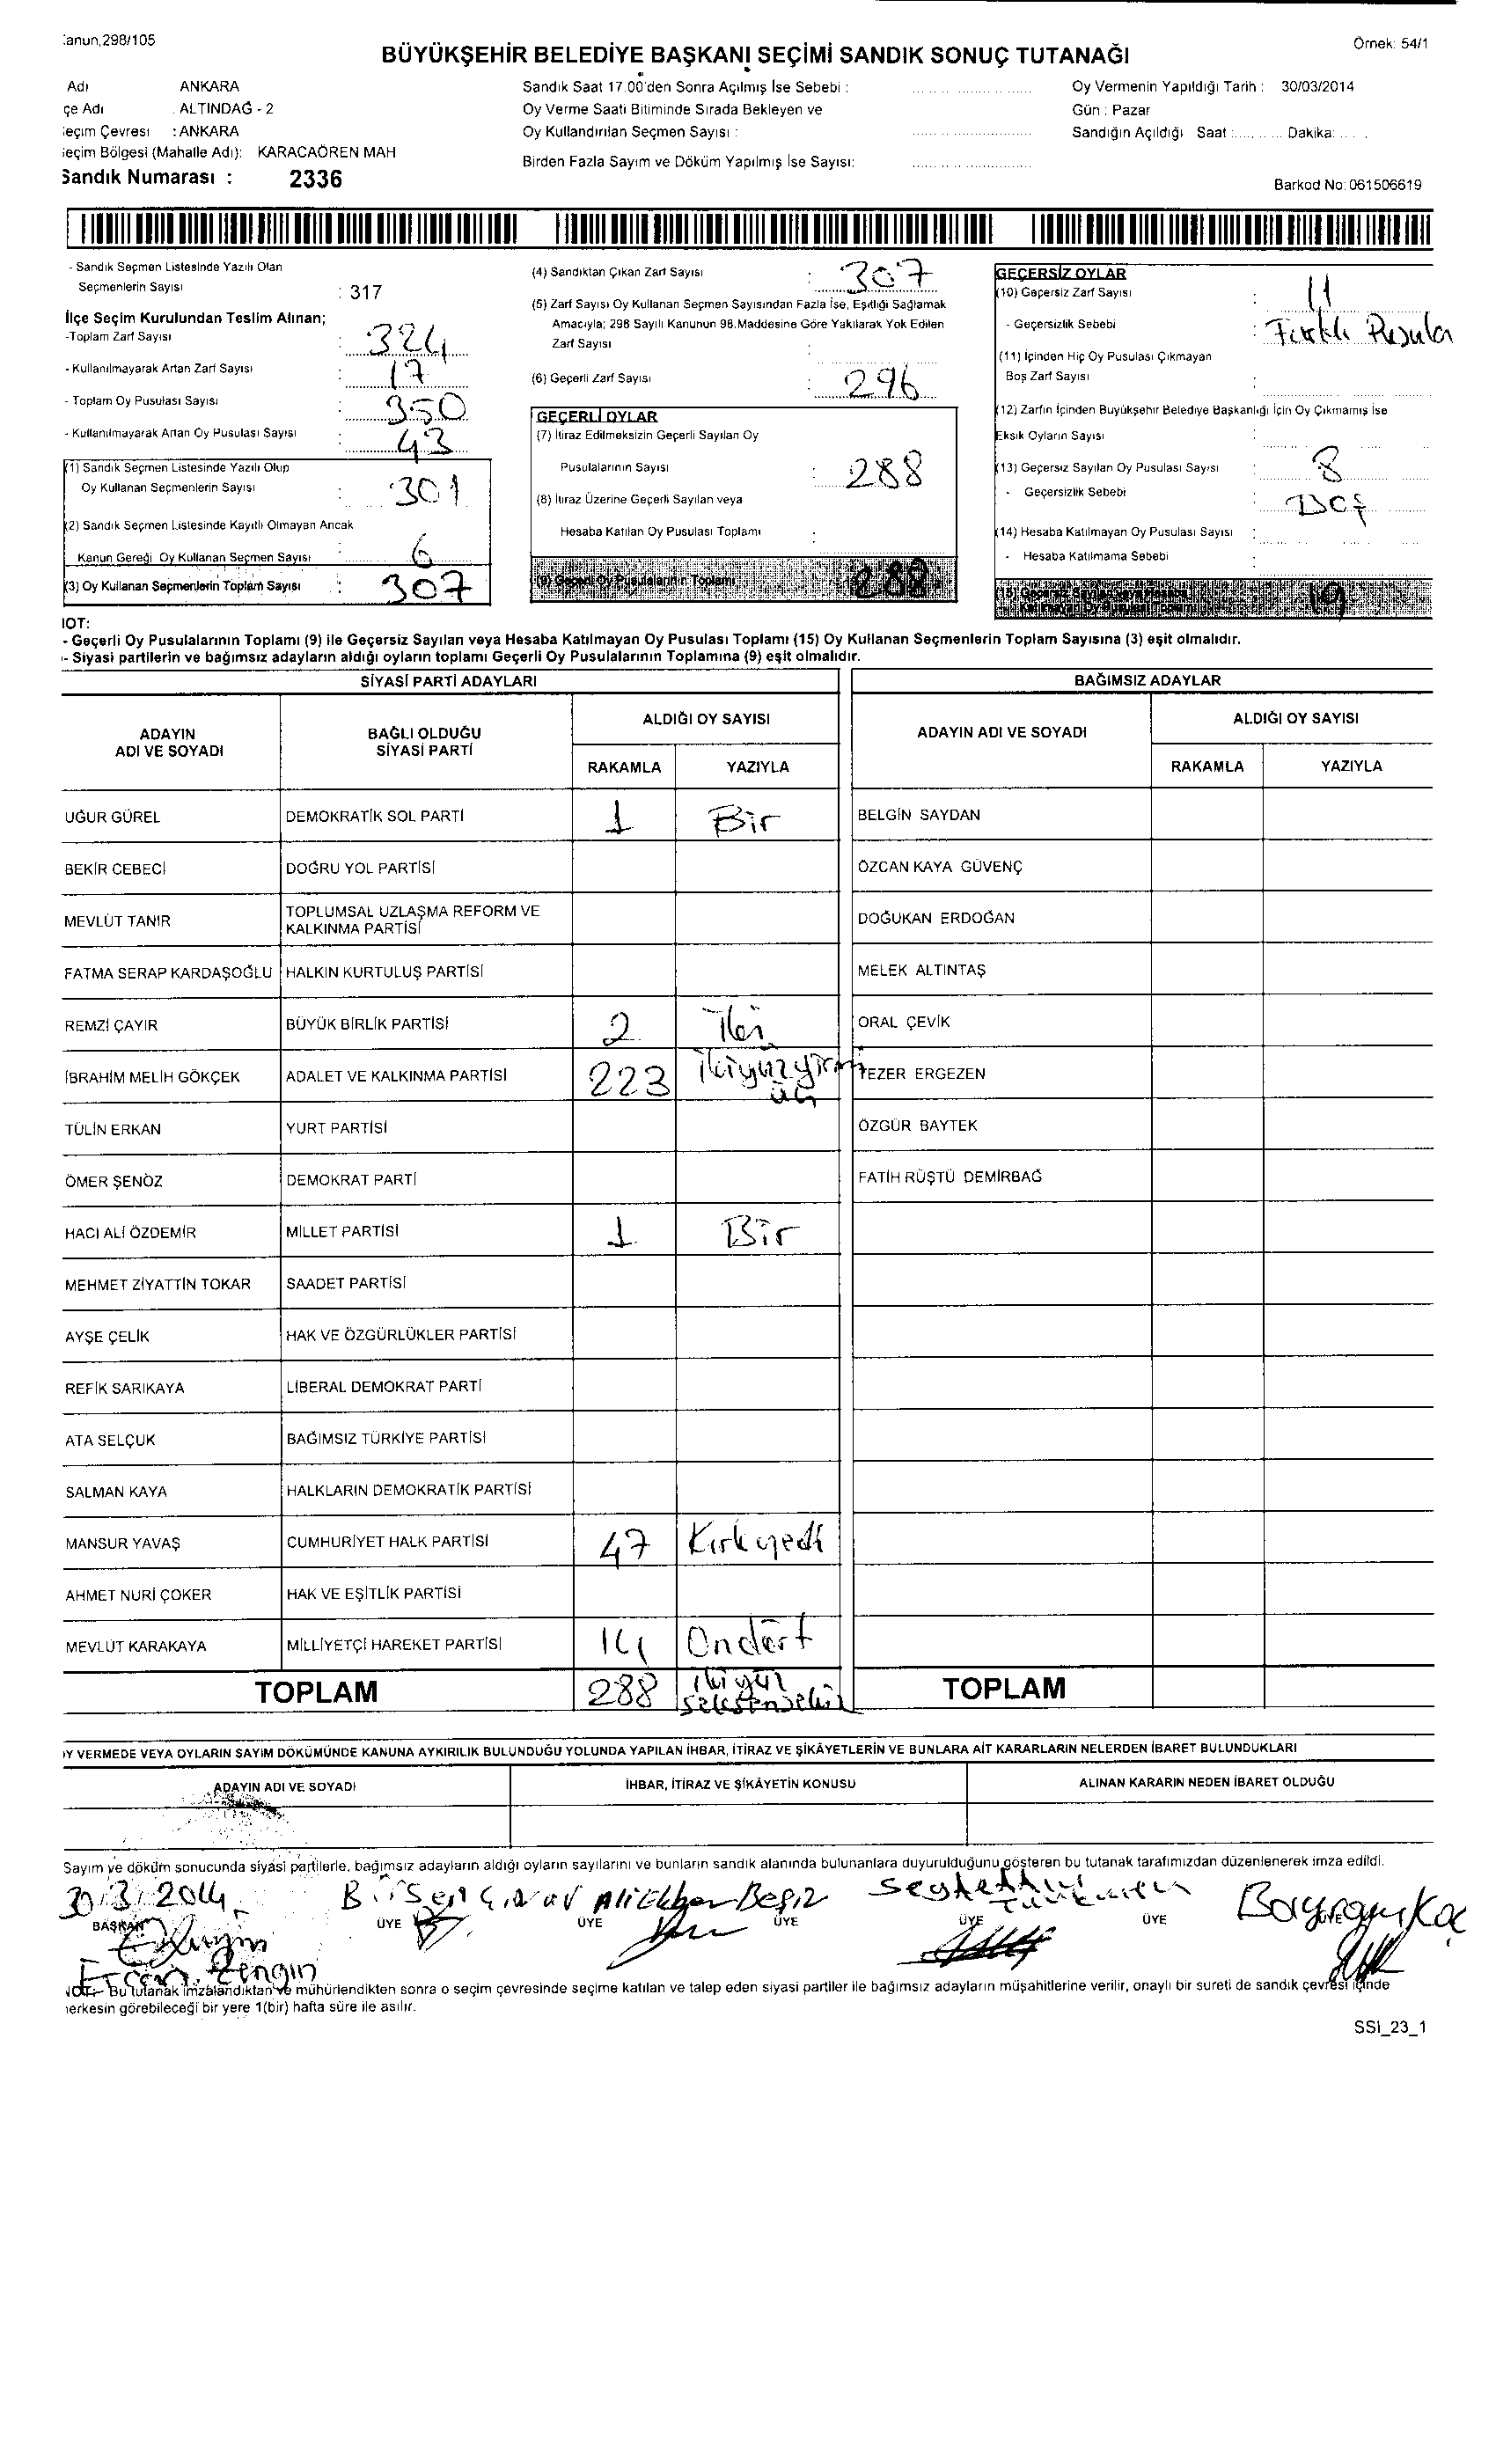 anun,298/105
Örnek: 54/1
BÜYÜKŞEHİR BELEDİYE BAŞKANI SEÇİMİ SANDIK SONUÇ TUTANAĞI
Adı ANKARA
çe Adı ALTINDAĞ - 2
eçim Çevresi : ANKARA
eçim Bölgesi (Mahalle Adı): KARACAÖREN MAH
Sandık Numarası : 2336
Sandık Saat 17.00'den Sonra Açılmış İse Sebebi :
Oy Verme Saati Bitiminde Sırada Bekleyen ve
Oy Kullandırılan Seçmen Sayısı :
Birden Fazla Sayım ve Döküm Yapılmış İse Sayısı:
Oy Vermenin Yapıldığı Tarih : 30/03/2014
Gün : Pazar
Sandığın Açıldığı Saat :.......... Dakika: .....
Barkod No: 061506619
- Sandık Seçmen Listesinde Yazılı Olan
Seçmenlerin Sayısı : 317
İlçe Seçim Kurulundan Teslim Alınan;
-Toplam Zarf Sayısı : 324
- Kullanılmayarak Artan Zarf Sayısı : 17
- Toplam Oy Pusulası Sayısı : 350
- Kullanılmayarak Artan Oy Pusulası Sayısı : 43
(1) Sandık Seçmen Listesinde Yazılı Olup
Oy Kullanan Seçmenlerin Sayısı : 301
(2) Sandık Seçmen Listesinde Kayıtlı Olmayan Ancak
Kanun Gereği Oy Kullanan Seçmen Sayısı : 6
(3) Oy Kullanan Seçmenlerin Toplam Sayısı : 307
(4) Sandıktan Çıkan Zarf Sayısı : 307
(5) Zarf Sayısı Oy Kullanan Seçmen Sayısından Fazla İse, Eşitliği Sağlamak
Amacıyla; 298 Sayılı Kanunun 98.Maddesine Göre Yakılarak Yok Edilen
Zarf Sayısı :
(6) Geçerli Zarf Sayısı : 296
GEÇERLİ OYLAR
(7) İtiraz Edilmeksizin Geçerli Sayılan Oy
Pusulalarının Sayısı : 288
(8) İtiraz Üzerine Geçerli Sayılan veya
Hesaba Katılan Oy Pusulası Toplamı :
(9) Geçerli Oy Pusulalarının Toplamı 288
GEÇERSİZ OYLAR
(10) Geçersiz Zarf Sayısı : 11
- Geçersizlik Sebebi : Farklı Pusula
(11) İçinden Hiç Oy Pusulası Çıkmayan
Boş Zarf Sayısı :
(12) Zarfın İçinden Büyükşehir Belediye Başkanlığı İçin Oy Çıkmamış İse
Eksik Oyların Sayısı :
(13) Geçersiz Sayılan Oy Pusulası Sayısı : 8
- Geçersizlik Sebebi : Boş
(14) Hesaba Katılmayan Oy Pusulası Sayısı :
- Hesaba Katılmama Sebebi :
(15) Geçersiz Sayılan veya Hesaba
Katılmayan Oy Pusulası Toplamı 19
NOT:
- Geçerli Oy Pusulalarının Toplamı (9) ile Geçersiz Sayılan veya Hesaba Katılmayan Oy Pusulası Toplamı (15) Oy Kullanan Seçmenlerin Toplam Sayısına (3) eşit olmalıdır.
- Siyasi partilerin ve bağımsız adayların aldığı oyların toplamı Geçerli Oy Pusulalarının Toplamına (9) eşit olmalıdır.
SİYASİ PARTİ ADAYLARI BAĞIMSIZ ADAYLAR
ADAYIN ADI VE SOYADI BAĞLI OLDUĞU SİYASİ PARTİ ALDIĞI OY SAYISI ADAYIN ADI VE SOYADI ALDIĞI OY SAYISI
RAKAMLA YAZIYLA RAKAMLA YAZIYLA
UĞUR GÜREL DEMOKRATİK SOL PARTİ 1 Bir BELGİN SAYDAN
BEKİR CEBECİ DOĞRU YOL PARTİSİ ÖZCAN KAYA GÜVENÇ
MEVLÜT TANIR TOPLUMSAL UZLAŞMA REFORM VE KALKINMA PARTİSİ DOĞUKAN ERDOĞAN
FATMA SERAP KARDAŞOĞLU HALKIN KURTULUŞ PARTİSİ MELEK ALTINTAŞ
REMZİ ÇAYIR BÜYÜK BİRLİK PARTİSİ 2 İki ORAL ÇEVİK
İBRAHİM MELİH GÖKÇEK ADALET VE KALKINMA PARTİSİ 223 ikiyüzyirmi üç TEZER ERGEZEN
TÜLİN ERKAN YURT PARTİSİ ÖZGÜR BAYTEK
ÖMER ŞENÖZ DEMOKRAT PARTİ FATİH RÜŞTÜ DEMİRBAĞ
HACI ALİ ÖZDEMİR MİLLET PARTİSİ 1 Bir
MEHMET ZİYATTİN TOKAR SAADET PARTİSİ
AYŞE ÇELİK HAK VE ÖZGÜRLÜKLER PARTİSİ
REFİK SARIKAYA LİBERAL DEMOKRAT PARTİ
ATA SELÇUK BAĞIMSIZ TÜRKİYE PARTİSİ
SALMAN KAYA HALKLARIN DEMOKRATİK PARTİSİ
MANSUR YAVAŞ CUMHURİYET HALK PARTİSİ 47 Kırkyedi
AHMET NURİ ÇOKER HAK VE EŞİTLİK PARTİSİ
MEVLÜT KARAKAYA MİLLİYETÇİ HAREKET PARTİSİ 14 Ondört
TOPLAM 288 ikiyüz seksensekiz TOPLAM
OY VERMEDE VEYA OYLARIN SAYIM DÖKÜMÜNDE KANUNA AYKIRILIK BULUNDUĞU YOLUNDA YAPILAN İHBAR, İTİRAZ VE ŞİKÂYETLERİN VE BUNLARA AİT KARARLARIN NELERDEN İBARET BULUNDUKLARI
ADAYIN ADI VE SOYADI İHBAR, İTİRAZ VE ŞİKÂYETİN KONUSU ALINAN KARARIN NEDEN İBARET OLDUĞU
Sayım ve döküm sonucunda siyasi partilerle, bağımsız adayların aldığı oyların sayılarını ve bunların sandık alanında bulunanlara duyurulduğunu gösteren bu tutanak tarafımızdan düzenlenerek imza edildi.
30/3/2014 Birsen Çınar Ali Ekber Beğiz Seyhettin Türkmen Bayram Koç
BAŞKAN ÜYE ÜYE ÜYE ÜYE ÜYE ÜYE
Ercan Zengin
NOT:- Bu tutanak imzalandıktan ve mühürlendikten sonra o seçim çevresinde seçime katılan ve talep eden siyasi partiler ile bağımsız adayların müşahitlerine verilir, onaylı bir sureti de sandık çevresi içinde
herkesin görebileceği bir yere 1(bir) hafta süre ile asılır.
SSİ_23_1